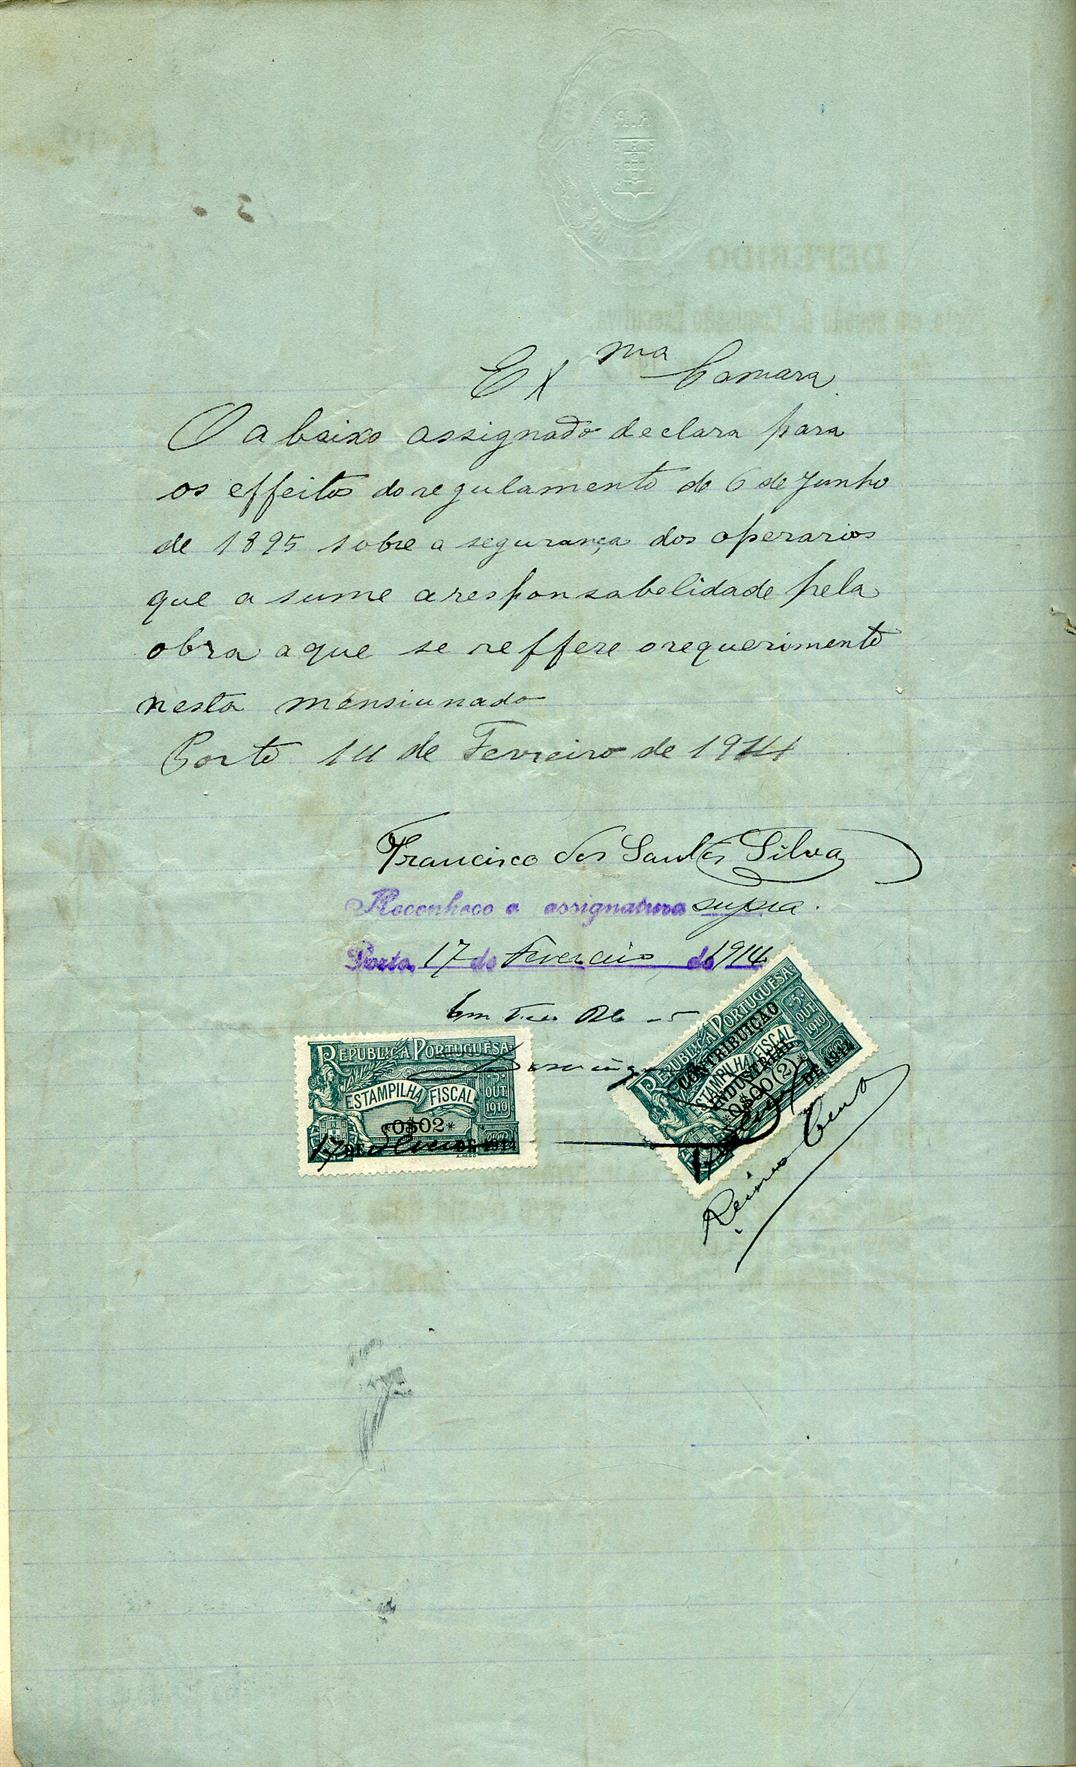 Exma Camara
O abaixo assignado declara para
os effeitos do regulamento de 6 de Junho
de 1895 sobre a segurança dos operarios
que asume a responsabelidade pela
obra a que se reffere o requerimento
nesta mensiunado
Porto 14 de Fevreiro de 1914
Francisco dos Santos Silva
Reconheco a assignatura supra.
Porto, 17 de Fevereiro de 1914
REPUBLICA PORTUGUESA
5 OUT 1910
ESTAMPILHA FISCAL
*0$02*
17 DE DE 1914
REPUBLICA PORTUGUESA
5 OUT 1910
CONTRIBUIÇÃO
ESTAMPILHA FISCAL
INDUSTRIAL
*0$00(2)*
DE 1914
DEFERIDO
em sessão da Comissão Executiva